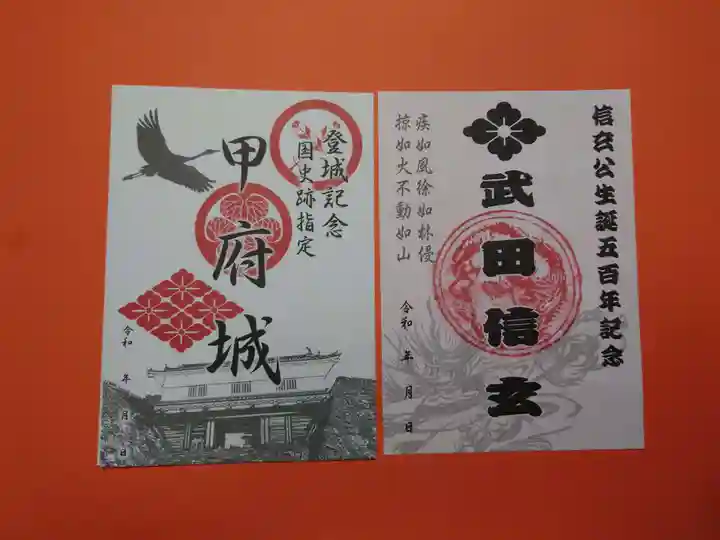 登城記念
国史跡指定
甲府城
令和 年 月 日
信玄公生誕五百年記念
武田信玄
疾如風徐如林侵
掠如火不動如山
令和 年 月 日